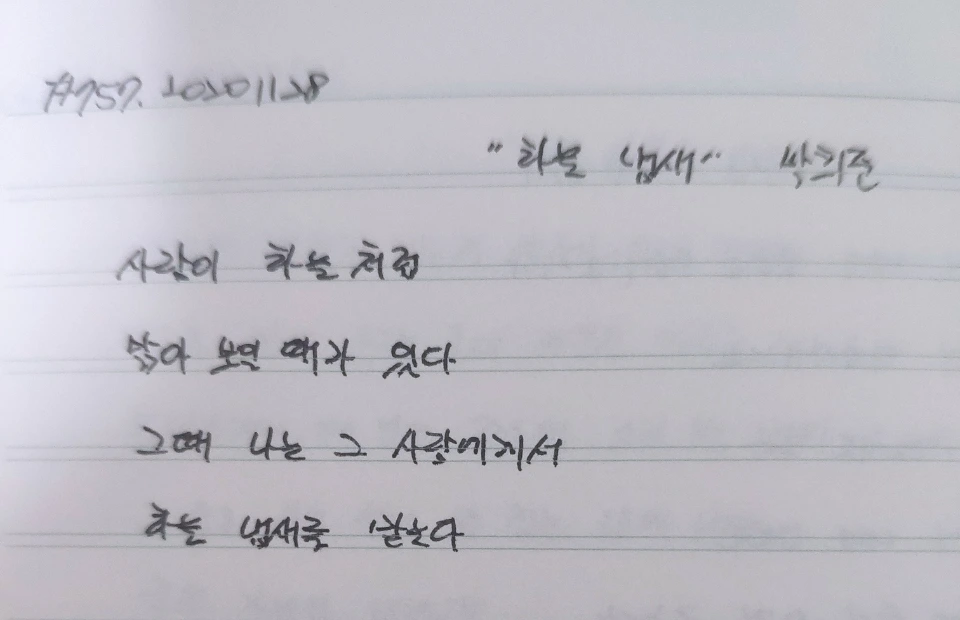 #757. 20201128
"하늘 냄새" 박희준
사람이 하늘처럼
맑아 보일 때가 있다
그때 나는 그 사람에게서
하늘 냄새를 맡는다